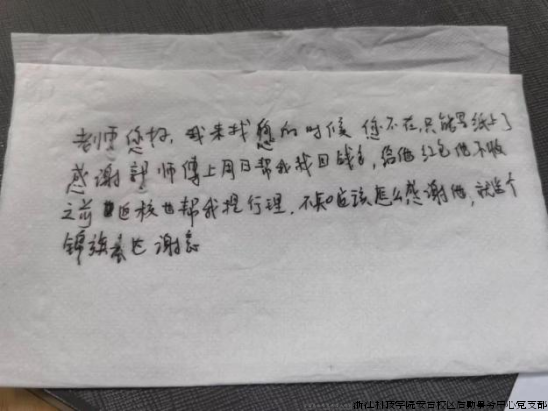 老师您好，我来找您的时候 您不在，只能写纸上了
感谢 师傅上周日帮我找回钱包，给他红包他不收
之前 返校也帮我提行理，不知应该怎么感谢他，就送个
锦旗表达 谢意
浙江科技学院安吉校区后勤服务中心党支部